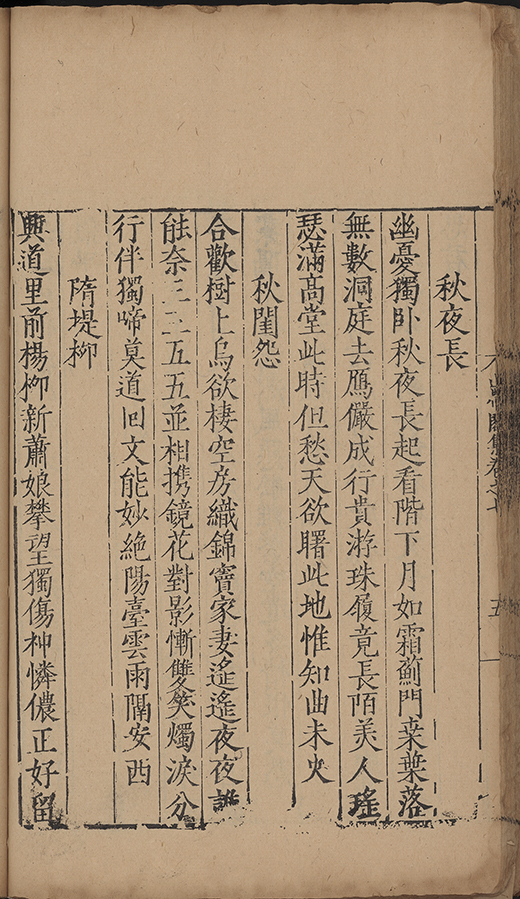 秋夜長
幽憂獨卧秋夜長起看階下月如霜薊門桒葉落
無數洞庭去鴈儼成行貴游珠履竟長陌美人瑤
瑟滿高堂此時但愁天欲曙此地惟知曲未央
秋閨怨
合歡樹上烏欲棲空房織錦竇家妻遙遙夜夜誰
能奈三三五五並相携鏡花對影慚雙笑燭淚分
行伴獨啼莫道回文能妙絶陽臺雲雨隔安西
隋堤柳
興道里前楊柳新蕭娘攀望獨傷神憐儂正好留
集卷之七
五